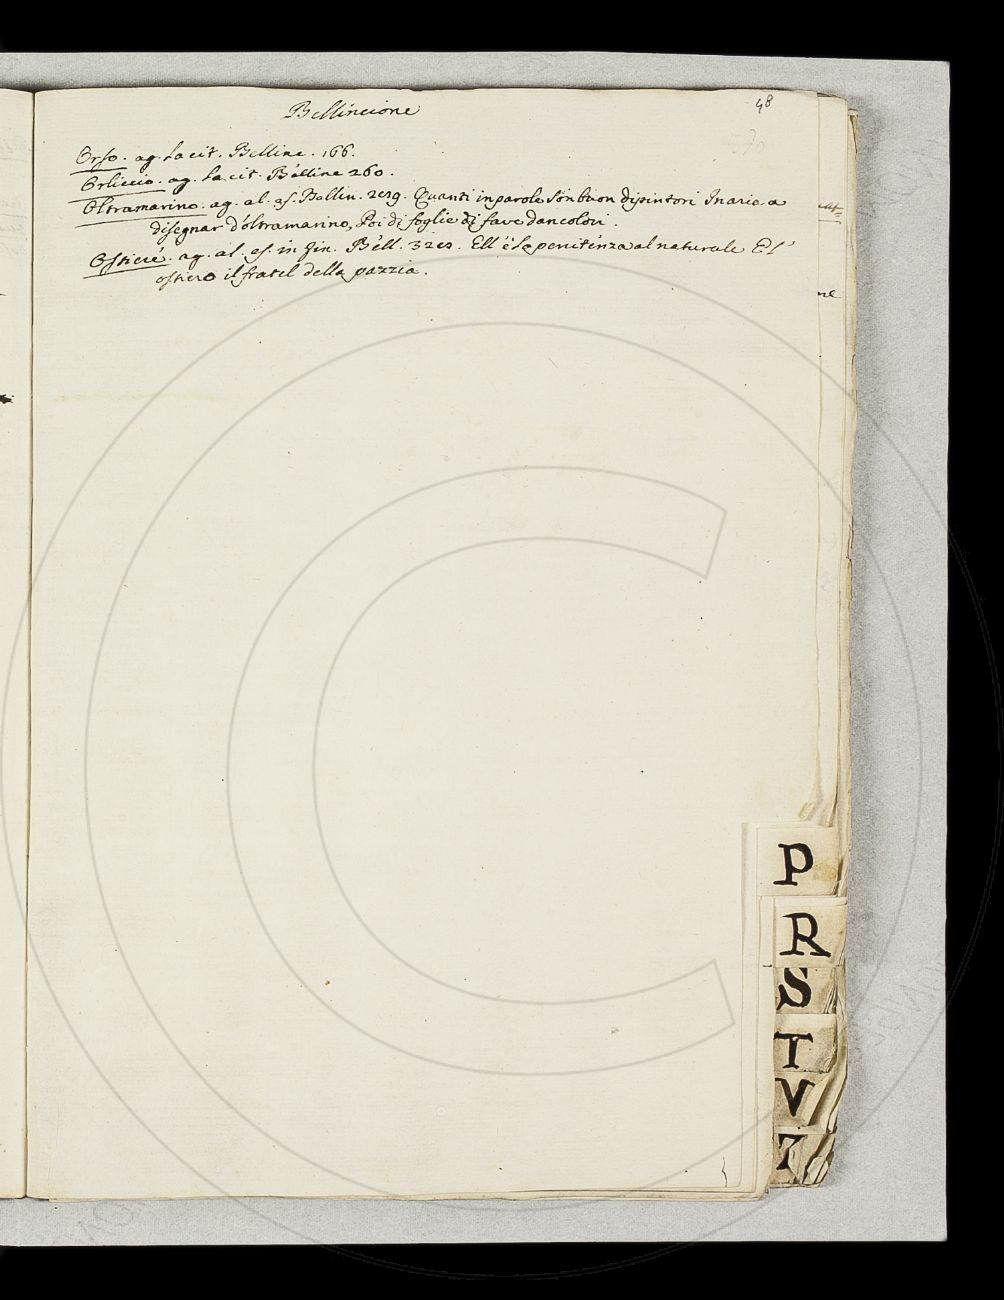 48
Bellincione
Orso. ag. la cit. Belline. 166.
Orliccio. ag. la cit. Belline 260.
Oltramarino. ag. al. es. Bellin. 219. Quanti in parole son buon dipintori In aria a
disegnar d'oltramarino, Poi di foglie di fave dan colori.
Ostiere. ag. al. es. in fin. Bell. 320. Ell' è la penitenza al naturale El'
ostiero il fratel della pazzia.
ne
P
R
S
T
V
Z